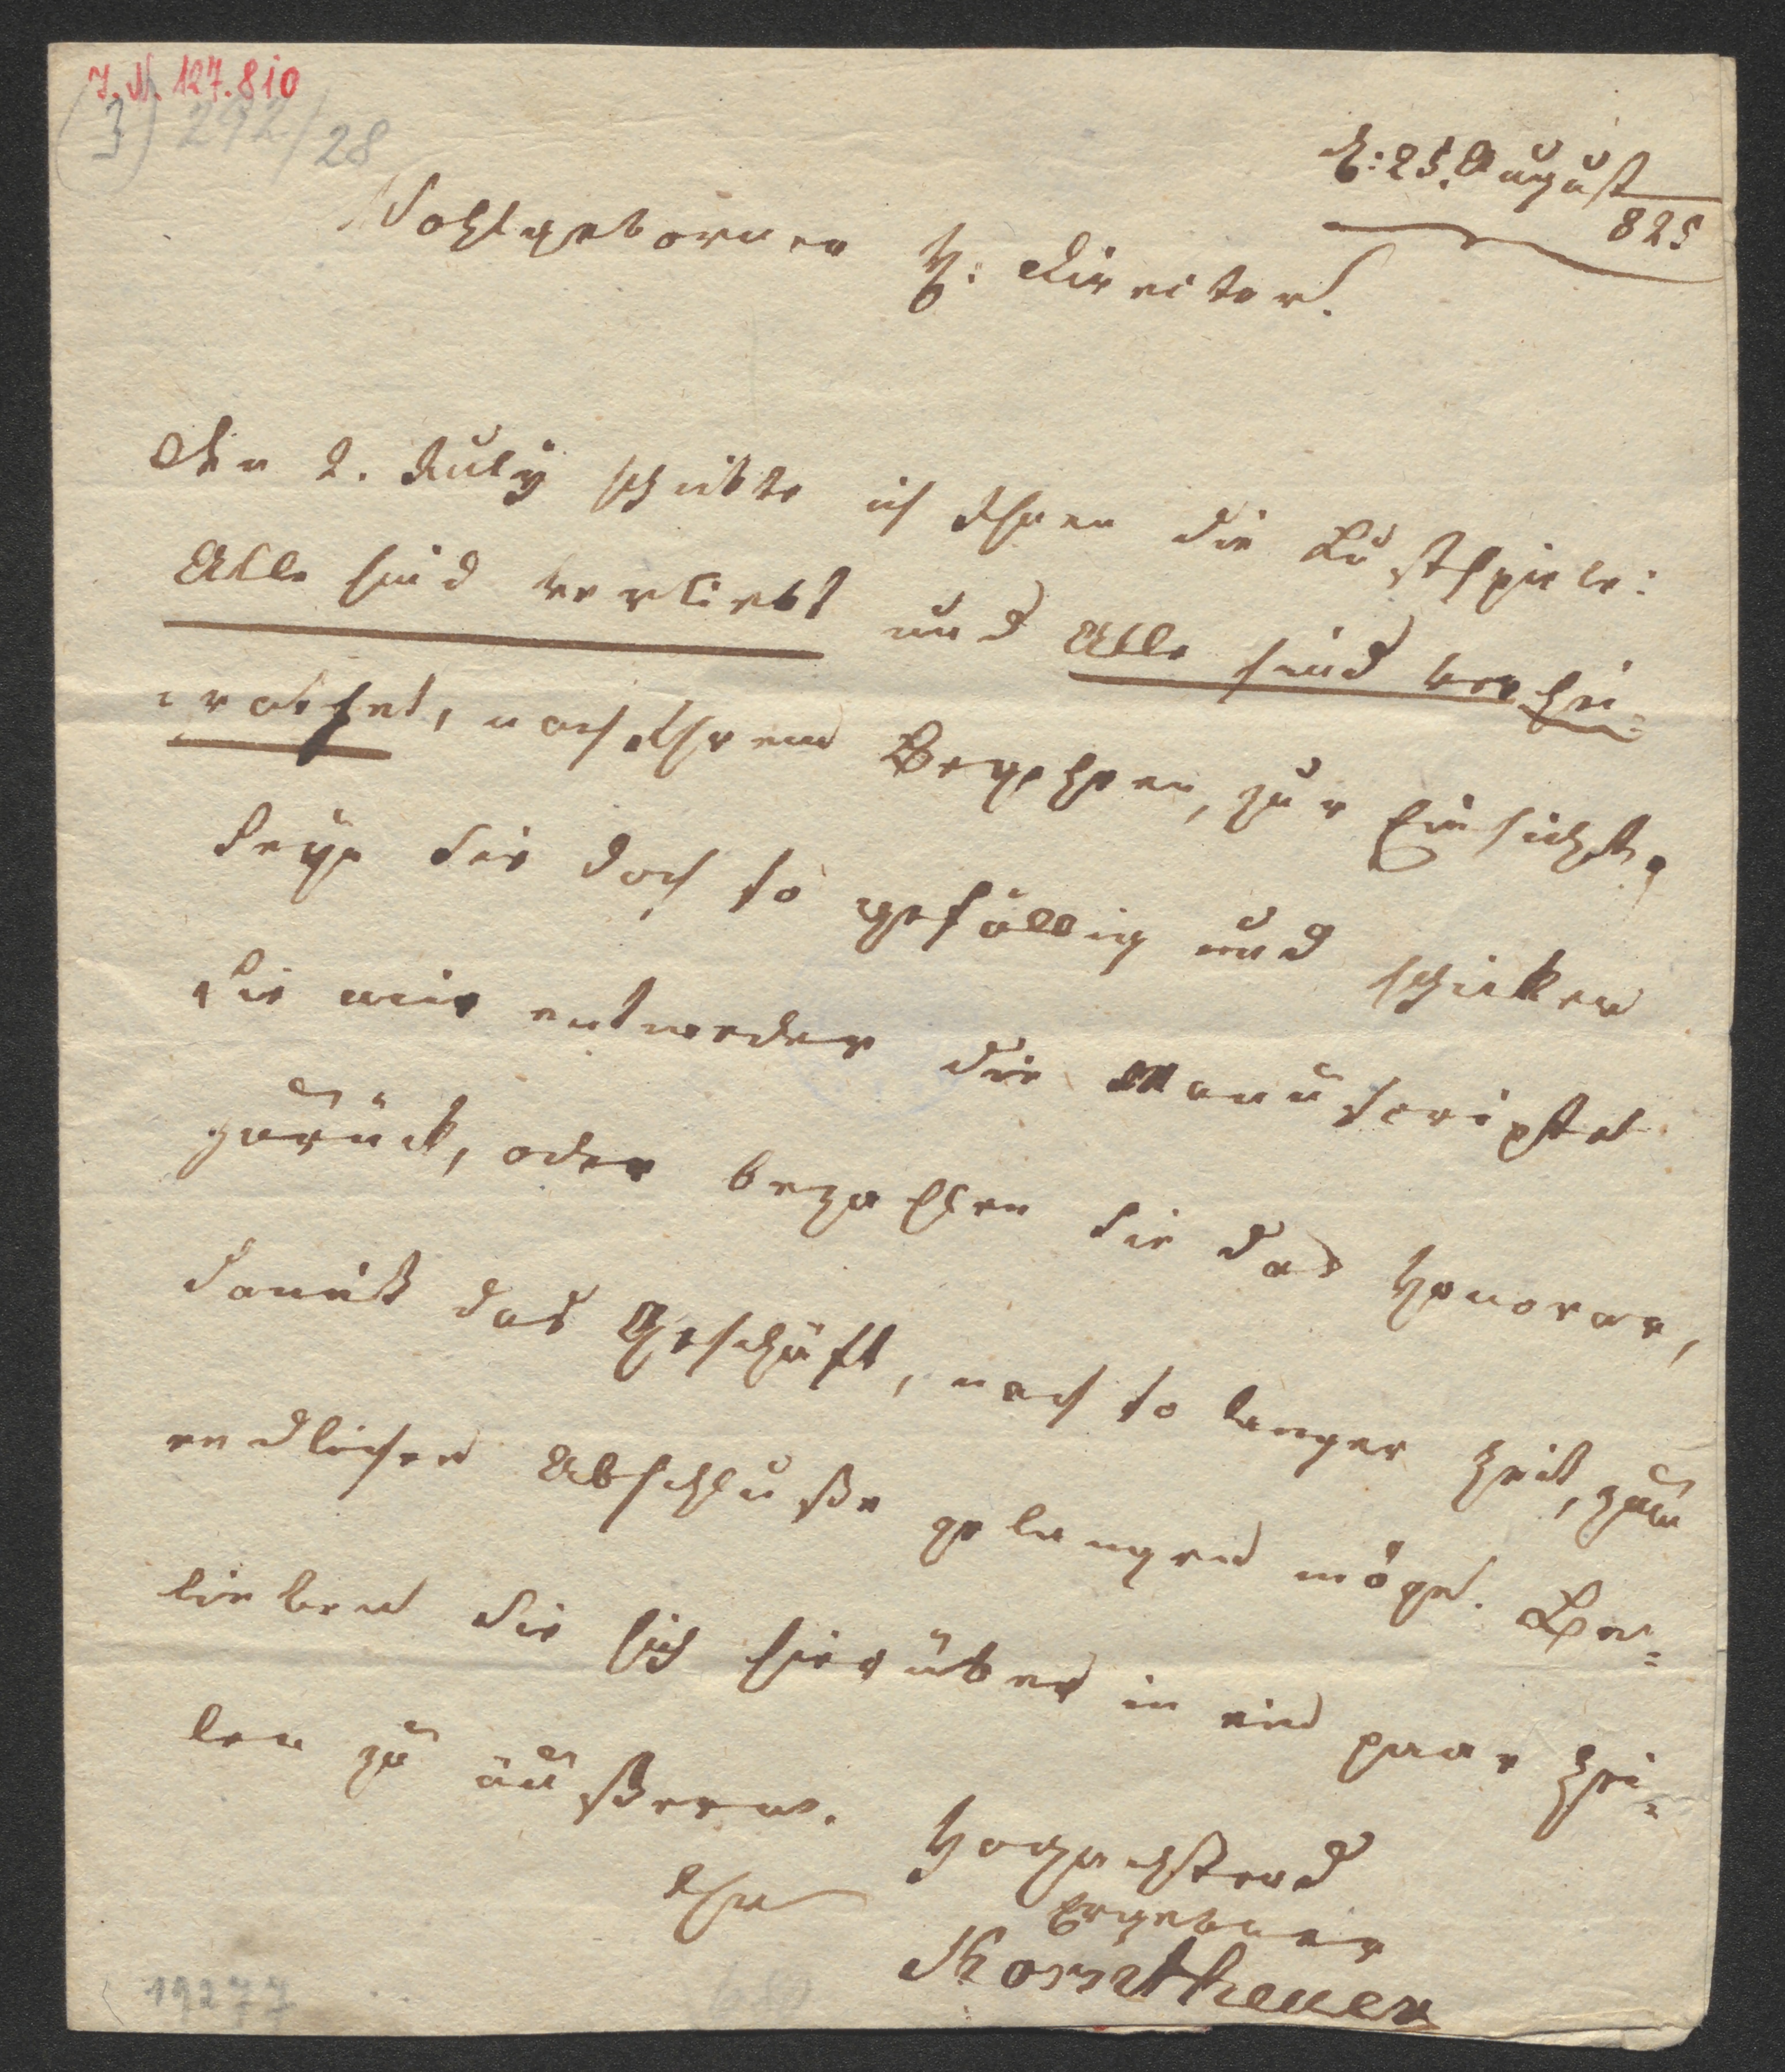 I. N. 127.810
3) 292/28
d: 25. August
825
Wohlgeborner H: Director!
Den 2. July schikte ich Ihnen die Lustspiele:
Alle sind verliebt und Alle sind verhei-
rathet, nach Ihrem Begehren, zur Einsicht.
Seyn Sie doch so gefällig und schicken
Sie mir entweder die Manuscripte
zurück, oder bezahlen Sie das Honorar,
damit das Geschäft, nach so langer Zeit, zum
endlichen Abschluße gelangen möge. Be-
lieben Sie sich hierüber in ein paar Zei-
len zu äußern.
Hochachtend
Ihr Ergebner
Korntheuer
19277